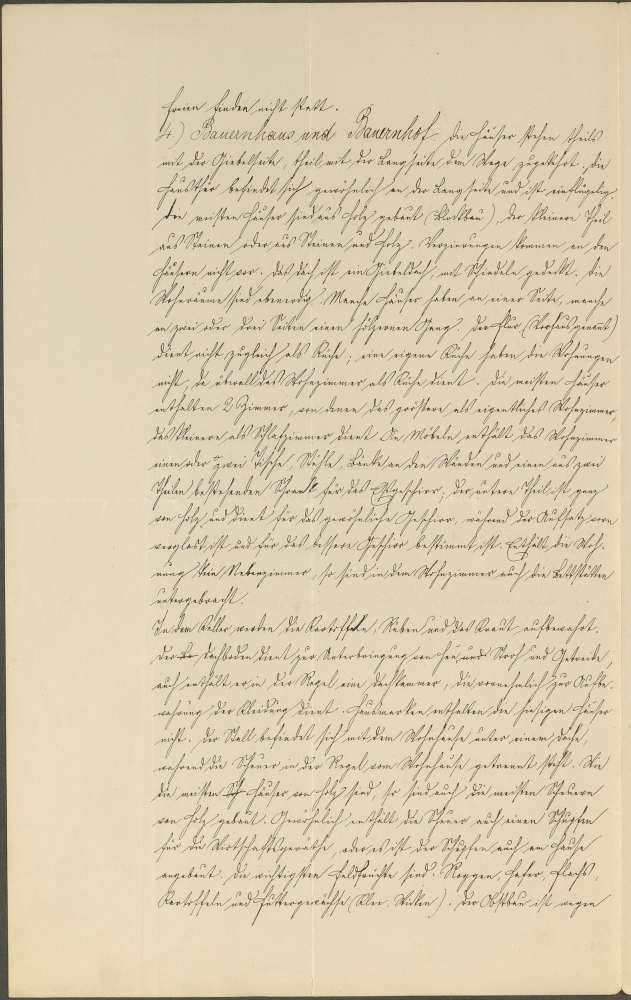 Freien finden nicht statt.
4) Bauernhaus und Bauernhof. Die Häuser stehen theils
mit der Giebelseite, theils mit der Langseite dem Wege zugekehrt. Die
Hausthür befindet sich gewöhnlich an der Langseite und ist einflügelig.
Die meisten Häuser sind aus Holz gebaut (Blockbau), der kleinere Theil
aus Steinen oder aus Steinen und Holz. Verzierungen kommen an den
Häusern nicht vor. Das Dach ist ein Giebeldach, mit Schindeln gedeckt. Die
Wohnräume sind ebenerdig. Manche Häuser haben an einer Seite, manche
an zwei oder drei Seiten einen hölzernen Gang. Der Flur (Vorhaus genannt)
dient nicht zugleich als Küche; eine eigene Küche haben die Wohnungen
nicht, da überall das Wohnzimmer als Küche dient. Die meisten Häuser
enthalten 2 Zimmer, von denen das größere als eigentliches Wohnzimmer,
das kleinere als Schlafzimmer dient. An Möbeln enthält das Wohnzimmer
einen oder zwei Tische, Stühle, Bänke an den Wänden und einen aus zwei
Theilen bestehenden Schrank für das Eßgeschirr; der untere Theil ist ganz
von Holz und dient für das gewöhnliche Geschirr, während der Aufsatz vorn
verglast ist und für das bessere Geschirr bestimmt ist. Enthält die Woh-
nung kein Nebenzimmer, so sind in dem Wohnzimmer auch die Bettstätten
untergebracht.
In dem Keller werden die Kartoffeln, Rüben und das Kraut aufbewahrt.
Der Dachboden dient zur Unterbringung von Heu und Stroh und Getreide,
auch enthält er in der Regel eine Dachkammer, die vornehmlich zur Aufbe-
wahrung der Kleidung dient. Hausmarken enthalten die hiesigen Häuser
nicht. Der Stall befindet sich mit dem Wohnhause unter einem Dache,
während die Scheuer in der Regel vom Wohnhause getrennt steht. Wie
die meisten Häuser von Holz sind, so sind auch die meisten Scheuern
von Holz gebaut. Gewöhnlich enthält die Scheuer auch einen Schupfen
für die Wirtschaftsgeräthe, oder es ist der Schupfen auch am Hause
angebaut. Die wichtigsten Feldfrüchte sind: Roggen, Hafer, Flachs,
Kartoffeln und Futtergewächse (Klee, Wicken). Der Obstbau ist wegen